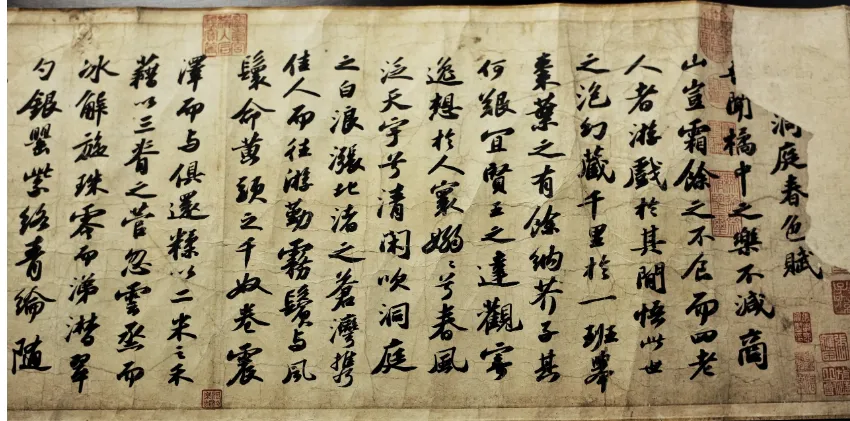 洞庭春色賦
聞橘中之樂不減商
山豈霜餘之不食而四老
人者游戲於其間悟此世
之泡幻藏千里於一班舉
棗葉之有餘納芥子其
何艱宜賢王之達觀寄
逸想於人寰嫋〻兮春風
泛天宇兮清閑吹洞庭
之白浪漲北渚之蒼灣攜
佳人而往游勤霧鬢与風
鬟命黄頭之千奴卷震
澤而与俱還糅以二米之禾
藉以三脊之菅忽雲烝而
冰解旋珠零而涕潸翠
勺銀罌紫絡青綸隨